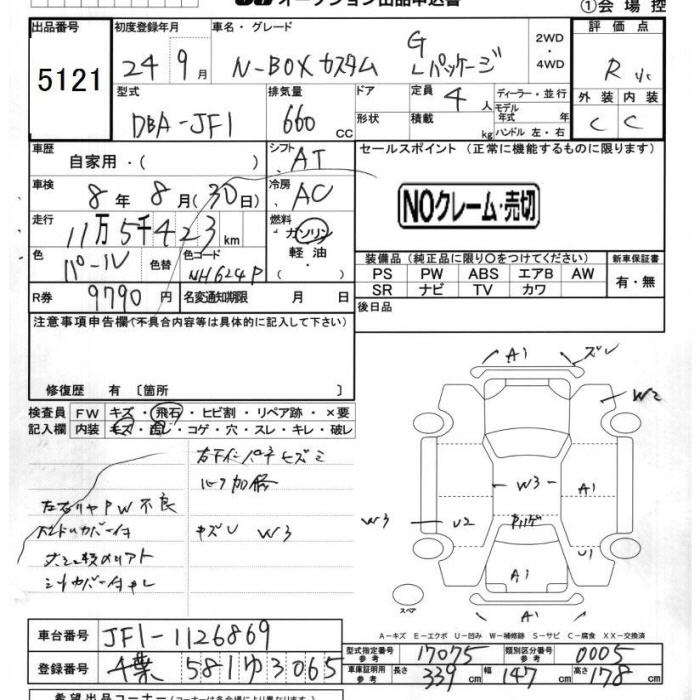 オークション出品申込書
①会場控
出品番号
5121
初度登録年月
24 9月
車名・グレード
N-BOXカスタム G Lパッケージ
2WD
・
4WD
評価点
R
外装 内装
C C
型式
DBA-JF1
排気量
660 CC
ドア
形状
定員 4 人
積載 kg
ディーラー・並行
モデル
年式 年
ハンドル 左・右
車歴
自家用・( )
シフト
AT
セールスポイント (正常に機能するものに限ります)
NOクレーム・売切
車検
8年 8月(30日)
冷房
AC
走行
11万5千423km
燃料
ガソリン
軽油
・
色
パール
色替
色コード
NH624P
装備品(純正品に限り〇をつけてください)
PS PW ABS エアB AW
SR ナビ TV カワ
新車保証書
有・無
R券
9790円
名変通知期限 月 日
後日品
注意事項申告欄(不具合内容等は具体的に記入して下さい)
修復歴 有 〔箇所 〕
検査員
記入欄
FW キズ・飛石・ヒビ割・リペア跡・×要
内装 キズ・汚レ・コゲ・穴・スレ・キレ・破レ
PW不良
キズU W3
A1
ズレ
W2
W3
A1
W3
U2
A1
U1
A1
スペア
A−キズ E−エクボ U−凹み W−補修跡 S−サビ C−腐食 XX−交換済
車台番号
JF1-1126869
登録番号
千葉 581ゆ3065
型式指定番号
参考
17075
類別区分番号
参考
0005
車庫証明用
参考
長さ 339cm
幅 147cm
高さ 178cm
希望出品コーナー